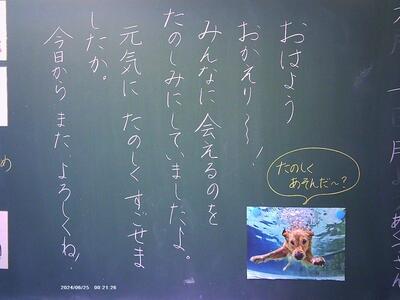 おはよう
おかえり～～!
みんなに会えるのを
たのしみにしていましたよ。
元気に たのしく すごせま
したか。
今日から また、よろしくね!
たのしく
あそんだ～?
2024/06/25 08:21:26
め